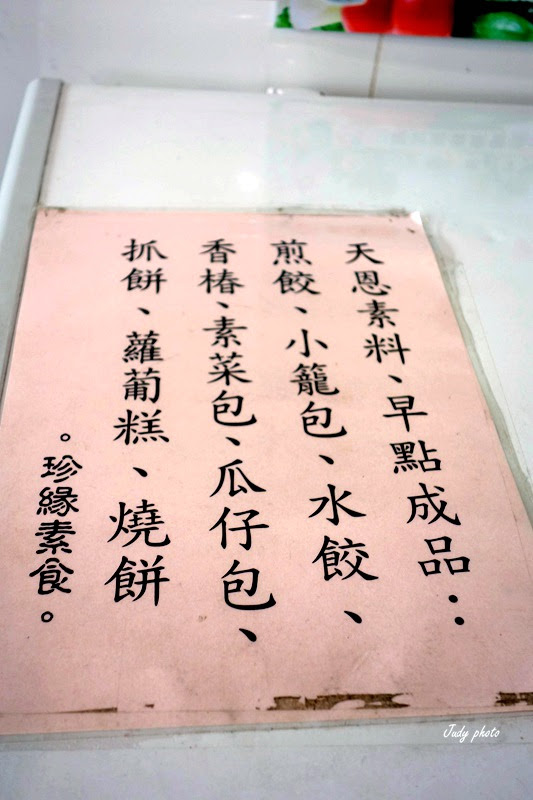 天恩素料、早點成品：
煎餃、小籠包、水餃、
香椿、素菜包、瓜仔包、
抓餅、蘿蔔糕、燒餅
。珍緣素食。
Judy photo